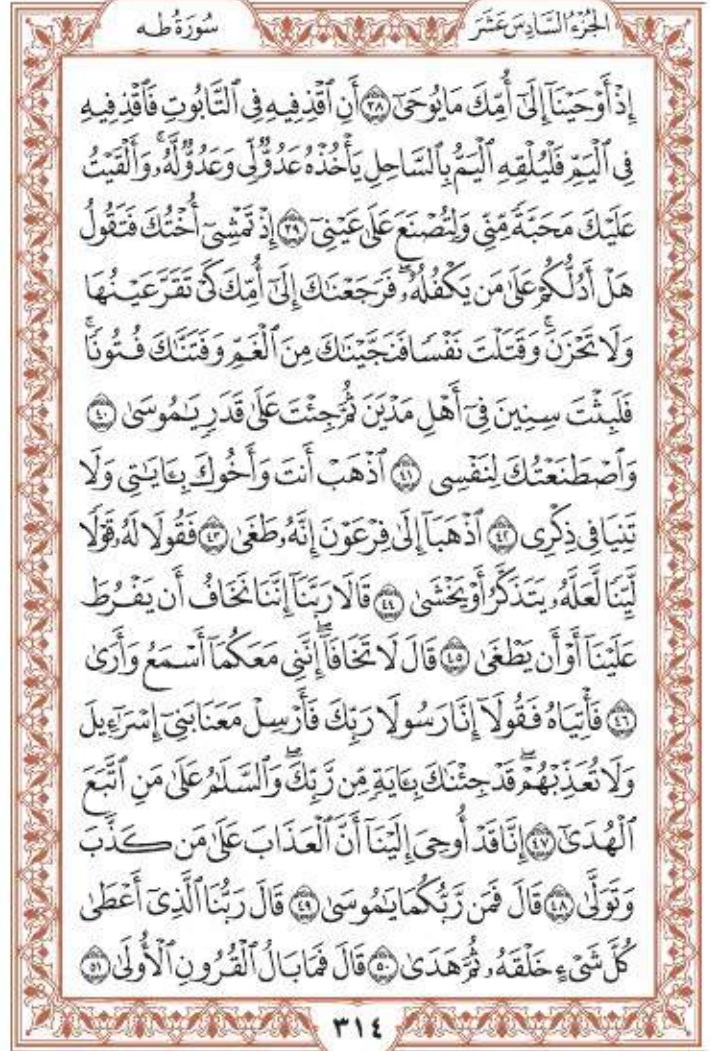 الجُزْءُ السَّادِسَ عَشَرَ
سُورَةُ طه
إِذْ أَوْحَيْنَآ إِلَىٰٓ أُمِّكَ مَا يُوحَىٰٓ ٣٨ أَنِ ٱقْذِفِيهِ فِي ٱلتَّابُوتِ فَٱقْذِفِيهِ
فِي ٱلْيَمِّ فَلْيُلْقِهِ ٱلْيَمُّ بِٱلسَّاحِلِ يَأْخُذْهُ عَدُوٌّ لِّي وَعَدُوٌّ لَّهُۥۚ وَأَلْقَيْتُ
عَلَيْكَ مَحَبَّةً مِّنِّي وَلِتُصْنَعَ عَلَىٰ عَيْنِيٓ ٣٩ إِذْ تَمْشِيٓ أُخْتُكَ فَتَقُولُ
هَلْ أَدُلُّكُمْ عَلَىٰ مَن يَكْفُلُهُۥۖ فَرَجَعْنَٰكَ إِلَىٰٓ أُمِّكَ كَيْ تَقَرَّ عَيْنُهَا
وَلَا تَحْزَنَۚ وَقَتَلْتَ نَفْسًا فَنَجَّيْنَٰكَ مِنَ ٱلْغَمِّ وَفَتَنَّٰكَ فُتُونًاۚ
فَلَبِثْتَ سِنِينَ فِيٓ أَهْلِ مَدْيَنَ ثُمَّ جِئْتَ عَلَىٰ قَدَرٍ يَٰمُوسَىٰ ٤٠
وَٱصْطَنَعْتُكَ لِنَفْسِي ٤١ ٱذْهَبْ أَنتَ وَأَخُوكَ بِـَٔايَٰتِي وَلَا
تَنِيَا فِي ذِكْرِي ٤٢ ٱذْهَبَآ إِلَىٰ فِرْعَوْنَ إِنَّهُۥ طَغَىٰ ٤٣ فَقُولَا لَهُۥ قَوْلًا
لَّيِّنًا لَّعَلَّهُۥ يَتَذَكَّرُ أَوْ يَخْشَىٰ ٤٤ قَالَا رَبَّنَآ إِنَّنَا نَخَافُ أَن يَفْرُطَ
عَلَيْنَآ أَوْ أَن يَطْغَىٰ ٤٥ قَالَ لَا تَخَافَآۖ إِنَّنِي مَعَكُمَآ أَسْمَعُ وَأَرَىٰ
٤٦ فَأْتِيَاهُ فَقُولَآ إِنَّا رَسُولَا رَبِّكَ فَأَرْسِلْ مَعَنَا بَنِيٓ إِسْرَٰٓءِيلَ
وَلَا تُعَذِّبْهُمْۖ قَدْ جِئْنَٰكَ بِـَٔايَةٍ مِّن رَّبِّكَۖ وَٱلسَّلَٰمُ عَلَىٰ مَنِ ٱتَّبَعَ
ٱلْهُدَىٰٓ ٤٧ إِنَّا قَدْ أُوحِيَ إِلَيْنَآ أَنَّ ٱلْعَذَابَ عَلَىٰ مَن كَذَّبَ
وَتَوَلَّىٰ ٤٨ قَالَ فَمَن رَّبُّكُمَا يَٰمُوسَىٰ ٤٩ قَالَ رَبُّنَا ٱلَّذِيٓ أَعْطَىٰ
كُلَّ شَيْءٍ خَلْقَهُۥ ثُمَّ هَدَىٰ ٥٠ قَالَ فَمَا بَالُ ٱلْقُرُونِ ٱلْأُولَىٰ ٥١
٣١٤